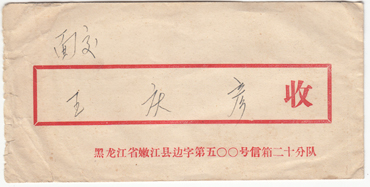 面交
王庆彦 收
黑龙江省嫩江县边字第五〇〇号信箱二十分队